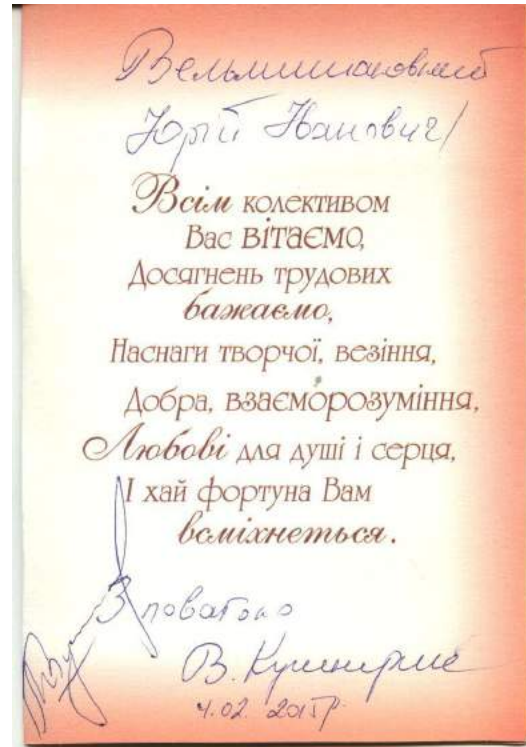 Вельмишановний
Юрій Іванович!
Всім колективом
Вас вітаємо,
Досягнень трудових
бажаємо,
Наснаги творчої, везіння,
Добра, взаєморозуміння,
Любові для душі і серця,
І хай фортуна Вам
всміхнеться.
З повагою
В.
4.02.2015р.